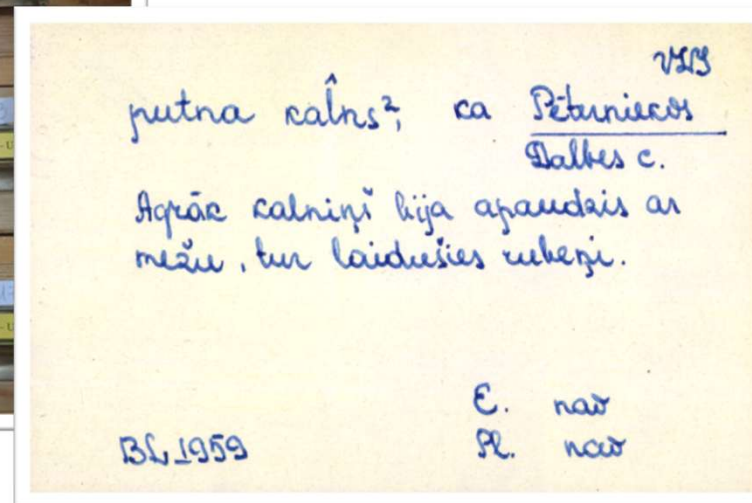 VLIS
putna kal̂ns², ka Pēterniekos
Dalbes c.
Agrāk kalniņš bija apaudzis ar
mežu, tur laidušies rubeņi.
E. nav
BL 1959
Pl. nav